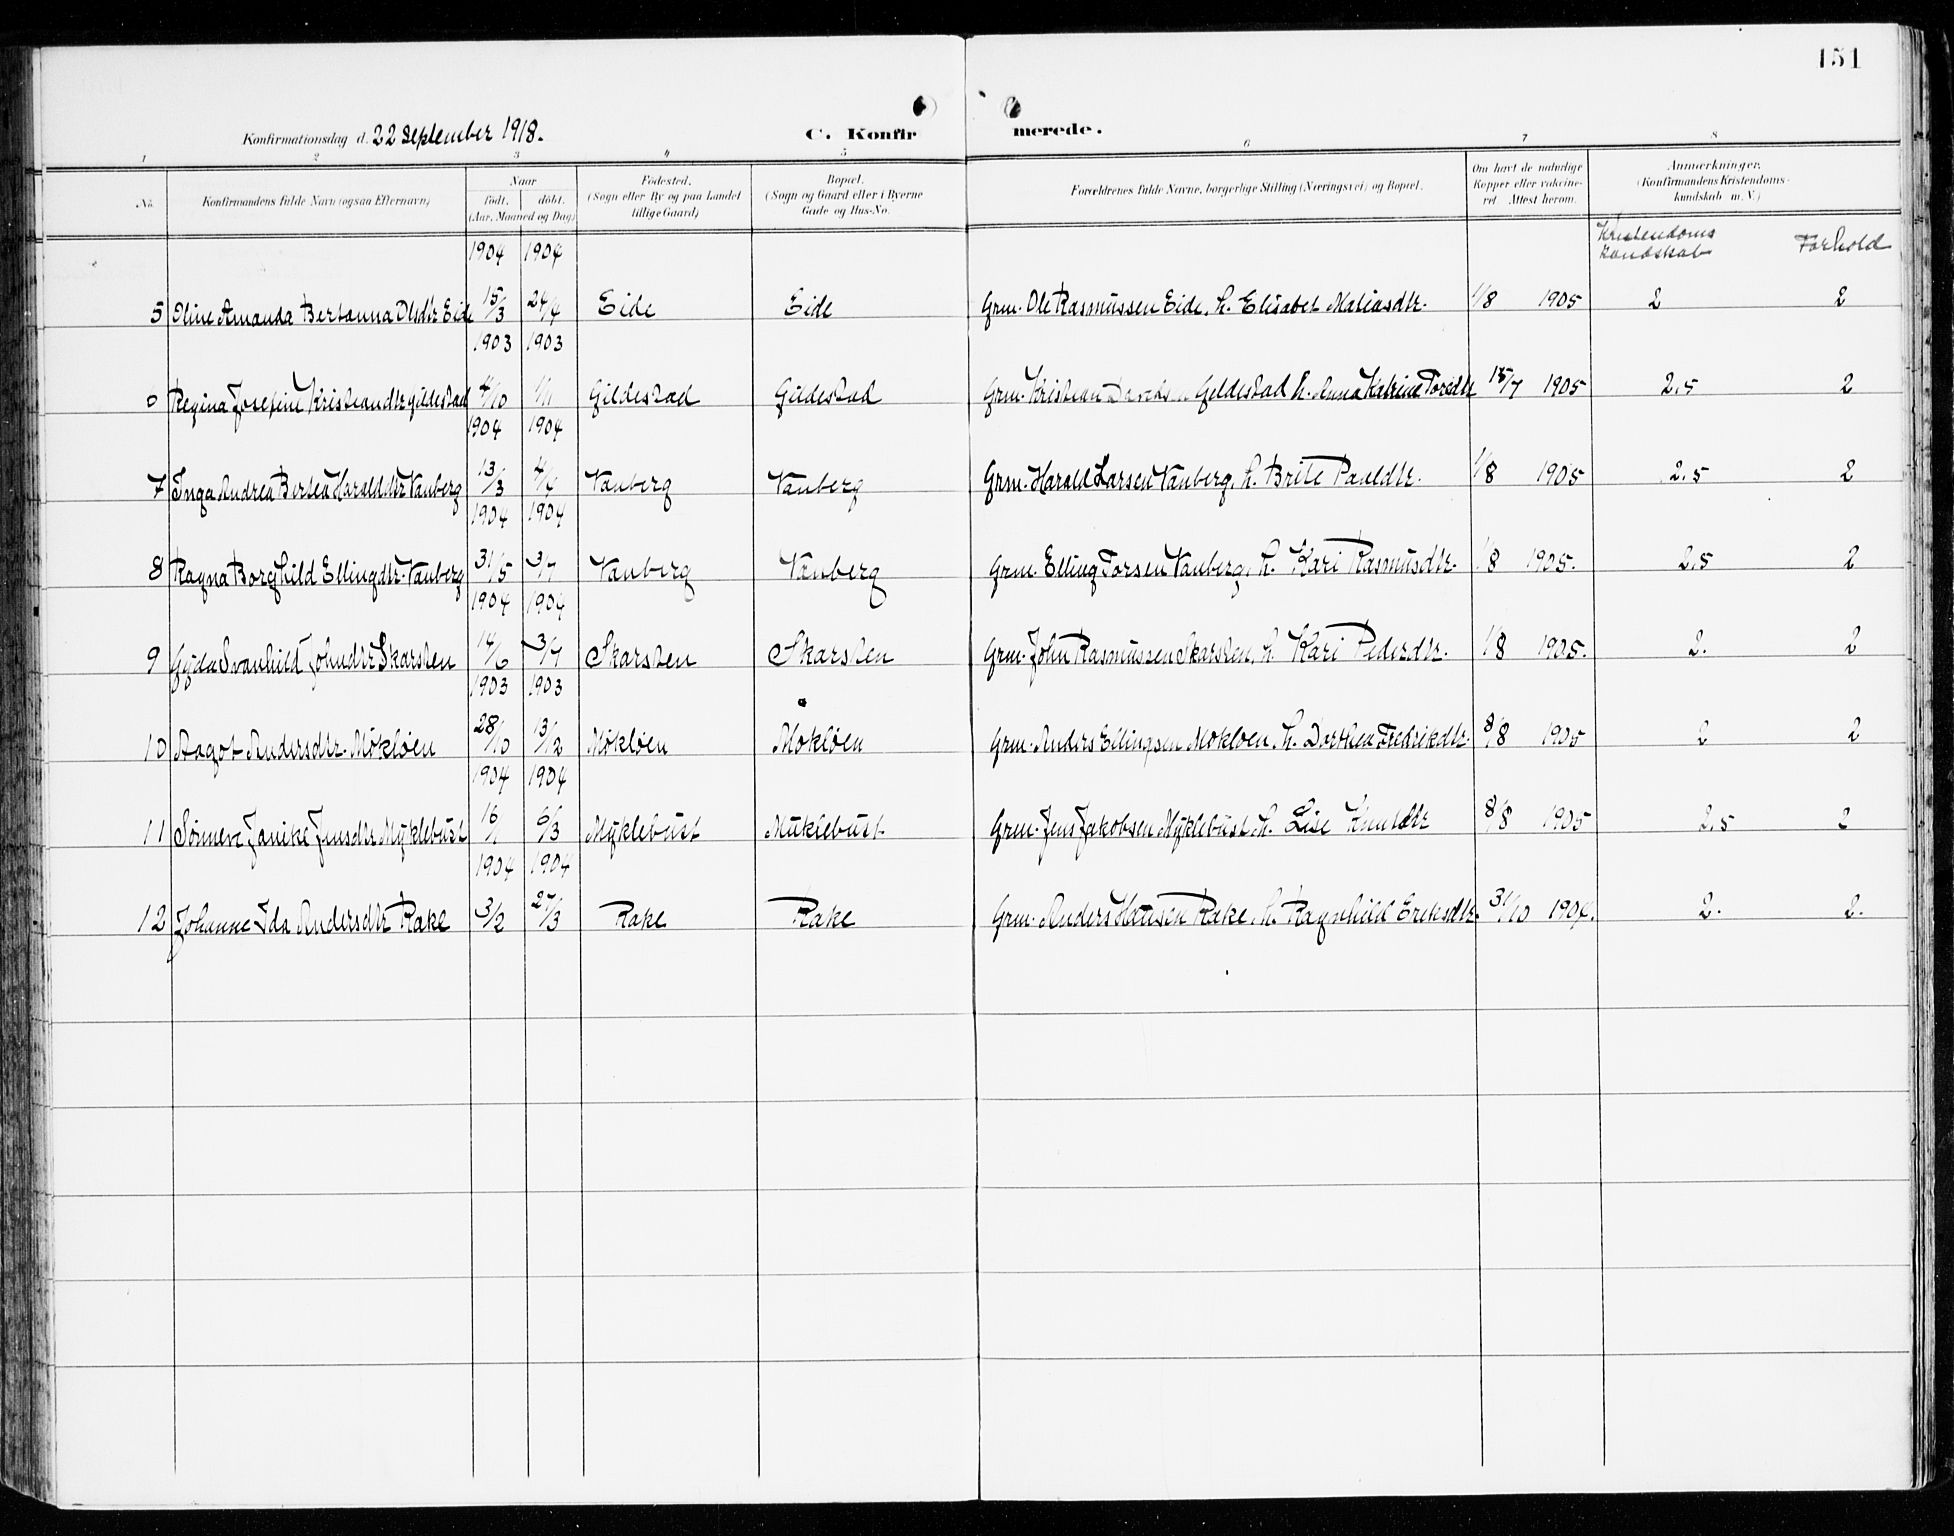 151
Konfirmationsdag d. 22 September 1918.
C. Konfirmerede.
1 2 3 4 5 6 7 8
No. Konfirmandens fulde Navn (ogsaa Efternavn) Naar født. døbt. (Aar, Maaned og Dag) Fødested. (Sogn eller By og paa Landet tillige Gaard) Bopæl. (Sogn og Gaard eller i Byerne Gade og Hus-No. Forældrenes fulde Navne, borgerlige Stilling (Næringsvei) og Bopæl. Om havt de naturlige Kopper eller vakcineret. Attest herom. Anmærkninger. (Konfirmandens Kristendomskundskab m. V.)
Kristendoms kundskab Forhold
1904 1904
5 Oline Amanda Bertanna Olsdtr Eide 15/3 24/4 Eide Eide Grm. Ole Rasmussen Eide, h. Elisabet Matiasdtr. 1/8 1905 2 2
1903 1903
6 Regina Josefine Kristiandtr Gildestad 4/10 1/11 Gildestad Gildestad Grm. Kristian Gildestad h. Anna Katrine Toredtr 15/7 1905 2,5 2
1904 1904
7 Inga Andrea Bertea Haralddtr Vanberg 13/3 4/4 Vanberg Vanberg Grm. Harald Larsen Vanberg, h. Brite Pauldtr. 1/8 1905 2,5 2
1904 1904
8 Ragna Borghild Ellingdtr. Vanberg 31/5 3/7 Vanberg Vanberg Grm. Elling Torsen Vanberg, h. Kari Rasmusdtr. 1/8 1905. 2,5 2
1904 1904
9 Gyda Svanhild Johndtr Skarsten 14/6 3/7 Skarsten Skarsten Grm. John Rasmussen Skarsten, h. Kari Pederdtr. 1/8 1905. 2. 2
1903 1903
10 Aagot Andersdtr. Mökløen 28/10 13/12 Mökløen Mokløen Grm. Anders Ellingsen Mokløen, h. Dorthea Fredrikdtr. 8/8 1905 2 2
1904 1904
11 Sönneve Janike Jensdtr Myklebust 16/1 6/3 Myklebust Muklebust Grm. Jens Jakobsen Myklebust h. Lise Knutdtr 8/8 1905 2,5 2
1904 1904
12 Johanne Ida Andersdtr Rake 3/2 27/3 Rake Rake Grm. Anders Hansen Rake, h. Ragnhild Eriksdtr. 31/10 1904. 2. 2.